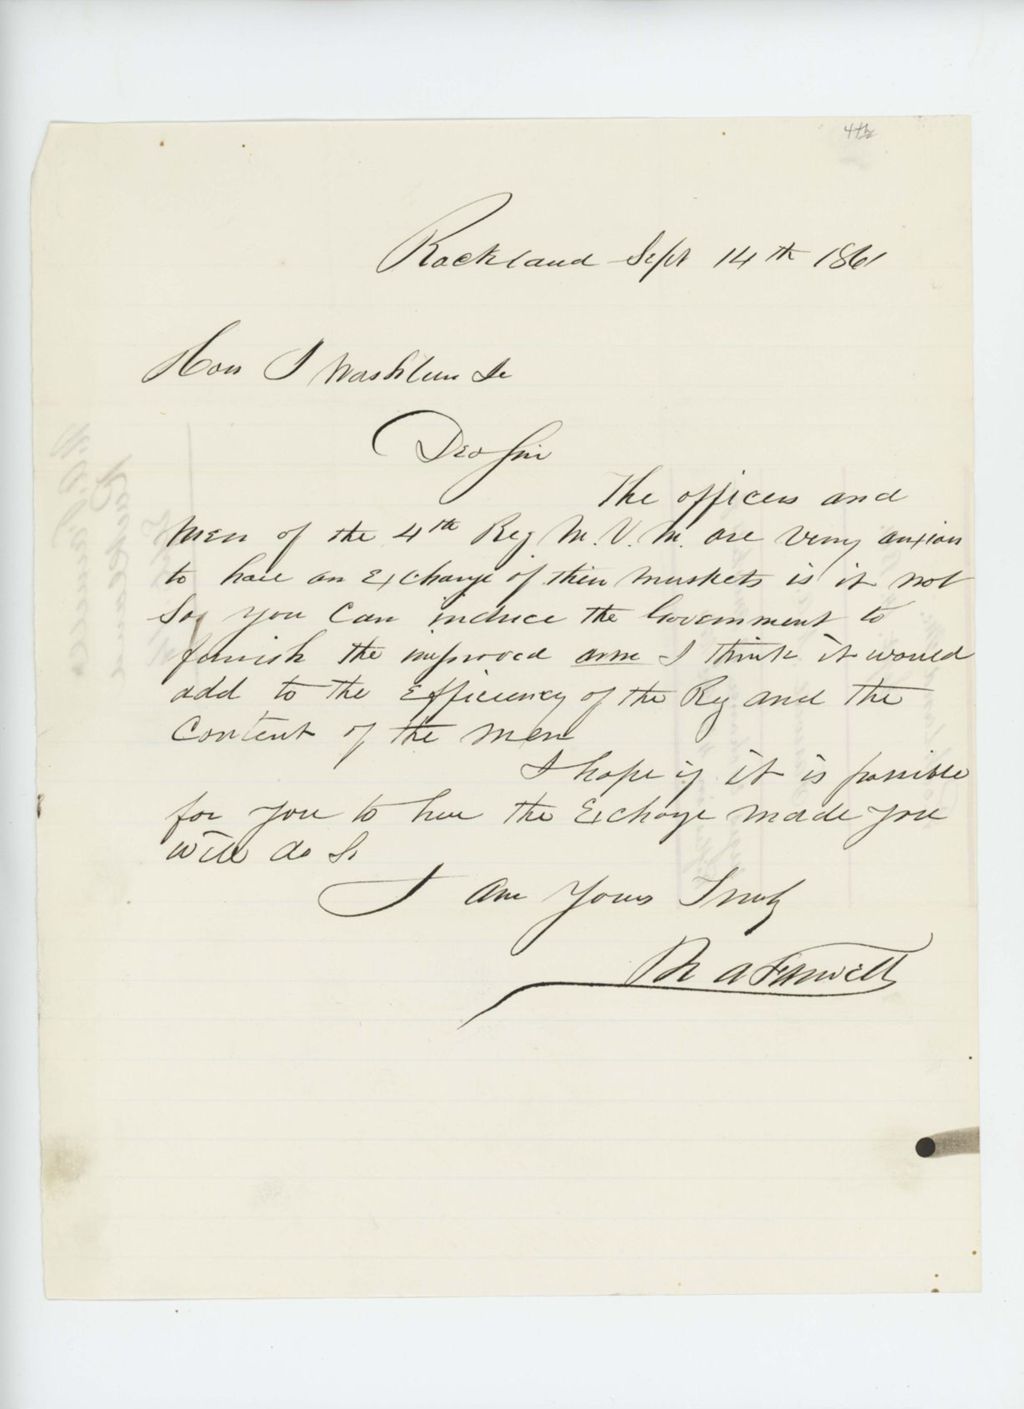 4th
Rockland Sept 14th 1861
Hon I Washburn Jr
Dear Sir
The officers and
Men of the 4th Reg M. V. M. are very anxious
to have an Exchange of their Muskets is it not
So you Can induce the Government to
furnish the improved arm I think it would
add to the Efficiency of the Reg and the
Content of the Men
I hope if it is possible
for you to have the Exchange made you
will do So
I Am Yours Truly
N A Farwell